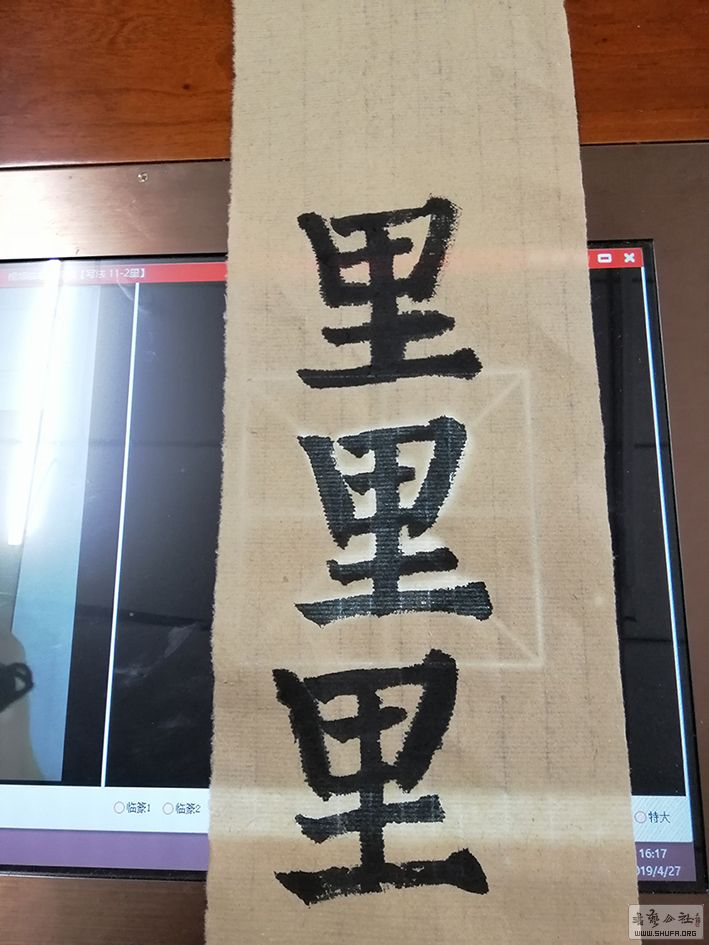 【写法 11-2里】
里
里
里
临摹1 临摹2
特大
16:17
019/4/27
WWW.SHUFA.ORG